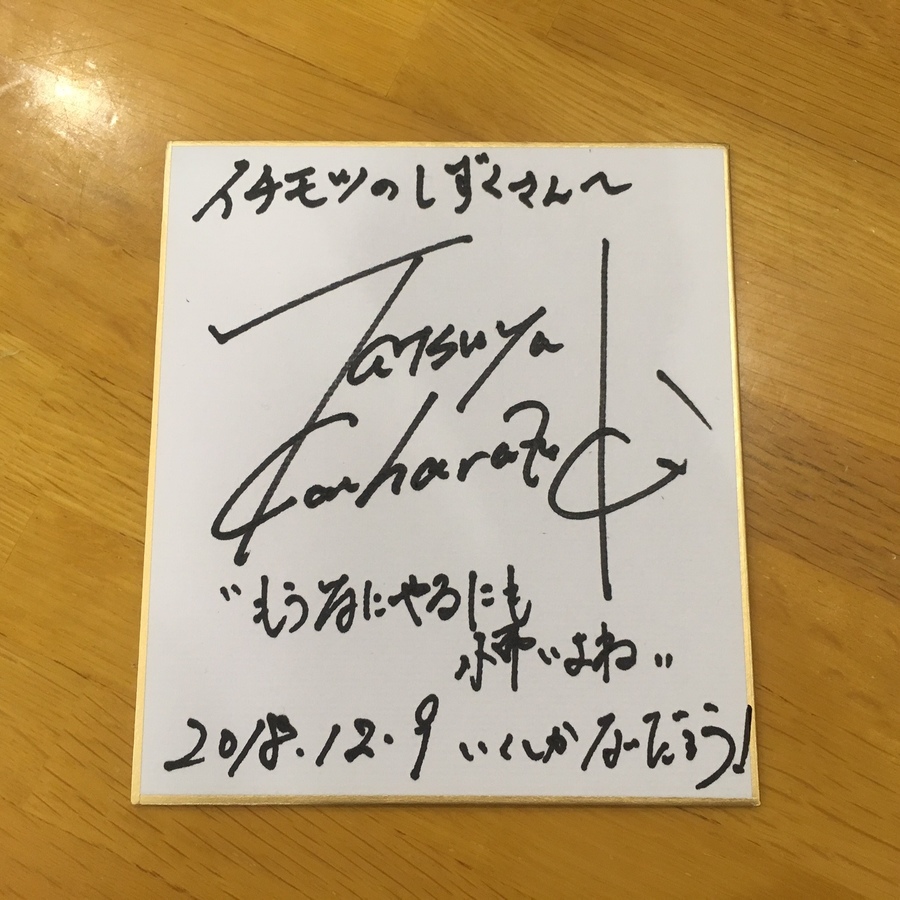 イチモツのしずくさんへ
Tatsuya
Kawahara
"もうなにやるにも
怖いよね"
2018.12.9 いくしかないだろう!